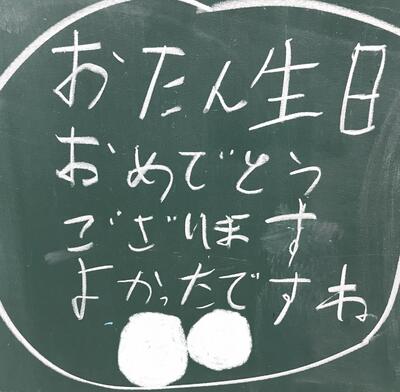 おたん生日
おめでとう
ございます
よかったですね